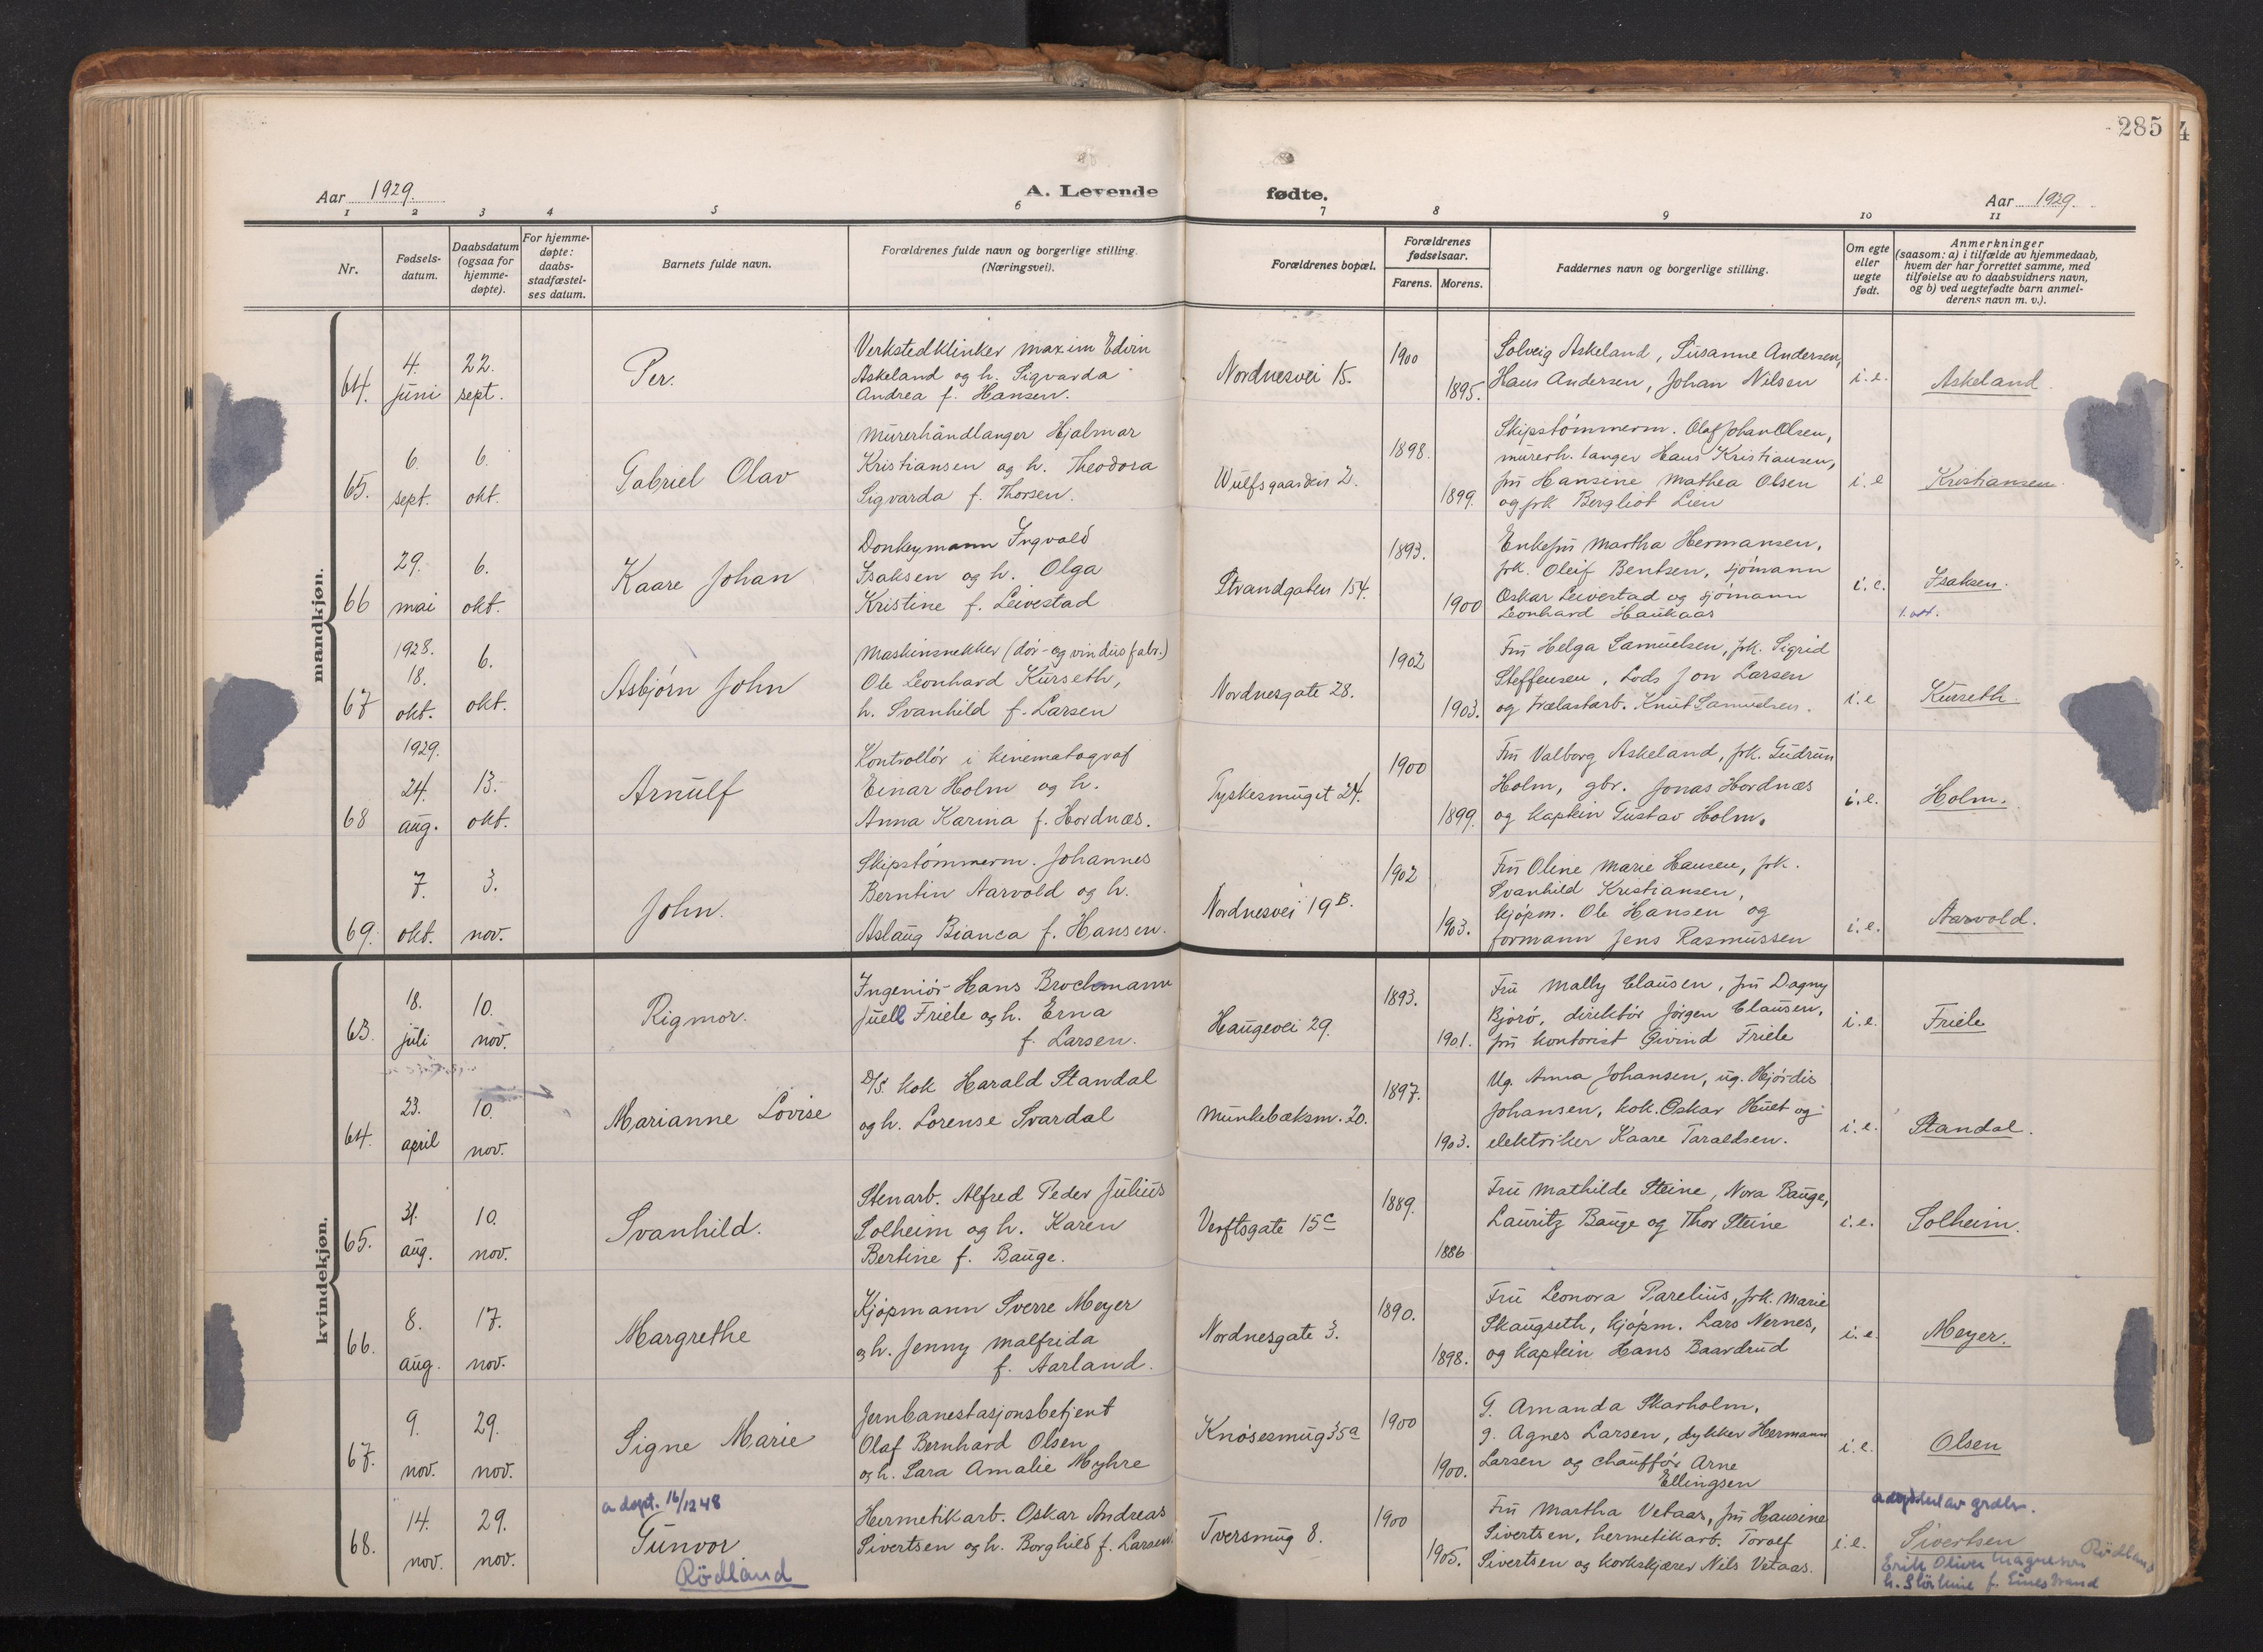 285
4
Aar 1929.
A. Levende
fødte.
Aar 1929.
1 2 3 4 5 6 7 8 9 10 11
Nr.
Fødsels-
datum.
Daabsdatum
(ogsaa for
hjemme-
døpte).
For hjemme-
døpte:
daabs-
stadfæstel-
ses datum.
Barnets fulde navn.
Forældrenes fulde navn og borgerlige stilling.
(Næringsvei).
Forældrenes bopæl.
Forældrenes
fødselsaar.
Farens. Morens.
Faddernes navn og borgerlige stilling.
Om egte
eller
uegte
født.
Anmerkninger
(saasom: a) i tilfælde av hjemmedaab,
hvem der har forrettet samme, med
tilføielse av to daabsvidners navn,
og b) ved uegtefødte barn anmel-
derens navn m. v.).
mandkjøn.
64.
4.
juni
22.
sept.
Per.
Verkstedklinker Maxim Edvin
Askeland og h. Sigvarda
Andrea f. Hansen.
Nordnesvei 15.
1900
1895.
Solveig Askeland, Susanne Andersen,
Hans Andersen, Johan Nilsen
i. e.
Askeland.
65.
6.
sept.
6.
okt.
Gabriel Olav
Murerhåndlanger Hjalmar
Kristiansen og h. Theodora
Sigvarda f. Thorsen.
Wulfsgaarden 2.
1898.
1899.
Skipstømmerm. Olaf Johan Olsen,
murerh. langer Hans Kristiansen,
fru Hansine Mathea Olsen
og frk Bergliot Lien
i. e
Kristiansen.
66
29.
mai
6.
okt.
Kaare Johan
Donkeymann Ingvald
Isaksen og h. Olga
Kristine f. Leivestad
Strandgaten 154.
1893.
1900
Enkefru Martha Hermansen,
frk. Oleif Bentsen, sjømann
Oskar Leivestad og sjømann
Leonhard Haukaas
i. e.
Isaksen.
67
1928.
18.
okt.
6.
okt.
Asbjørn John
Maskinsnekker (dør- og vindusfabr.)
Ole Leonhard Kurseth,
h. Svanhild f. Larsen
Nordnesgate 28.
1902
1903.
Fru Helga Samuelsen, frk. Sigrid
Steffensen, Lods Jon Larsen
og trælastarb. Knut Samuelsen.
i. e
Kurseth.
68
1929.
24.
aug.
13.
okt.
Arnulf
Kontrollør i kinematograf
Einar Holm og h.
Anna Karina f. Hordnæs.
Tyskesmuget 24.
1900
1899.
Fru Valborg Askeland, frk. Gudrun
Holm, gbr. Jonas Hordnæs
og kaptein Gustav Holm.
i. e.
Holm.
69.
7.
okt.
3.
nov.
John.
Skipstømmerm. Johannes
Berntin Aarvold og h.
Aslaug Bianca f. Hansen.
Nordnesvei 19 B.
1902
1903.
Fru Oline Marie Hansen, frk.
Svanhild Kristiansen,
kjøpm. Ole Hansen og
formann Jens Rasmussen
i. e.
Aarvold.
kvindekjøn.
63.
18.
juli
10.
nov.
Rigmor.
Ingeniør Hans Brochmann
Juell Friele og h. Erna
f. Larsen.
Haugevei 29.
1893.
1901.
Fru Mally Clausen, fru Dagny
Bjorø, direktør Jørgen Clausen,
fru kontorist Eivind Friele
i. e.
Friele
64.
23.
april
10.
nov.
Marianne Lovise
D/S. kok Harald Standal
og h. Lorense Svardal
Munkebæksm. 20.
1897.
1903.
Ug. Anna Johansen, ug. Hjørdis
Johansen, kok. Oskar Huet og
elektriker Kaare Taraldsen.
i. e.
Standal.
65.
31.
aug.
10.
nov.
Svanhild.
Stenarb. Alfred Peder Julius
Solheim og h. Karen
Bertine f. Bauge.
Verftsgate 15 c
1889.
1886
Fru Mathilde Steine, Nora Bauge,
Lauritz Bauge og Thor Steine
i. e.
Solheim.
66.
8.
aug.
17.
nov.
Margrethe
Kjøpmann Sverre Meyer
og h. Jenny Malfrida
f. Aarland.
Nordnesgate 3.
1890.
1898.
Fru Leonora Parelius, frk. Marie
Skaugseth, kjøpm. Lars Nernes,
og kaptein Hans Baardrud
i. e.
Meyer.
67.
9.
nov.
29.
nov.
Signe Marie
Jernbanestasjonsbetjent
Olaf Bernhard Olsen
og h. Sara Amalie Myhre
Knøsesmug 35a
1900
1900.
G. Amanda Skarholm,
g. Agnes Larsen, dykker Hermann
Larsen og chauffør Arne
Ellingsen
i. e.
Olsen
68.
14.
nov.
29.
nov.
adopt. 16/12 48
Gunvor
Rödland
Hermetikarb. Oskar Andreas
Sivertsen og h. Borghild f. Larsen
Tversmug 8.
1900
1905.
Fru Martha Vetaas, fru Hansine
Sivertsen, hermetikarb. Torolf
Sivertsen og korkskjærer Nils Vetaas.
i. e.
Sivertsen
Erik Oliver Magneson Rödland